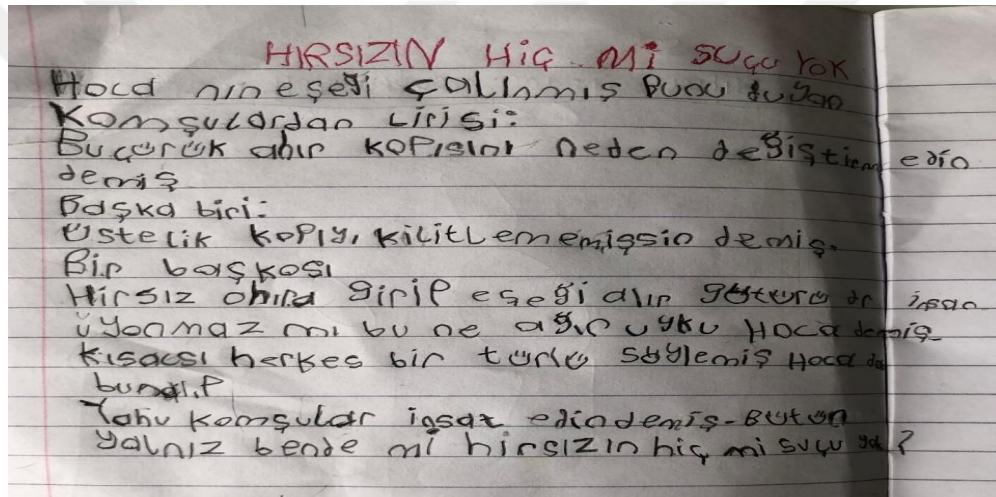 HIRSIZIN HİÇ Mİ SUÇU YOK
Hoca nın eşeği çalınmış Bunu duyan
Komşulardan birisi:
Bu çürük ahır kopısını neden değiştirm edin
demiş
Başka biri:
Üstelik kopıyı kilitlememişsin demiş.
Bir başkosı
Hirsız ohıra girip eşeği alıp götürü or insan
uyonmaz mı bu ne ağır uyku Hoca demiş.
Kısacsı herkes bir türlü söylemiş Hoca da
bunalıp
Yahu Komşular insaf edin demiş-Bütün
yalnız bende mi hirsızın hiç mi suçu yok?